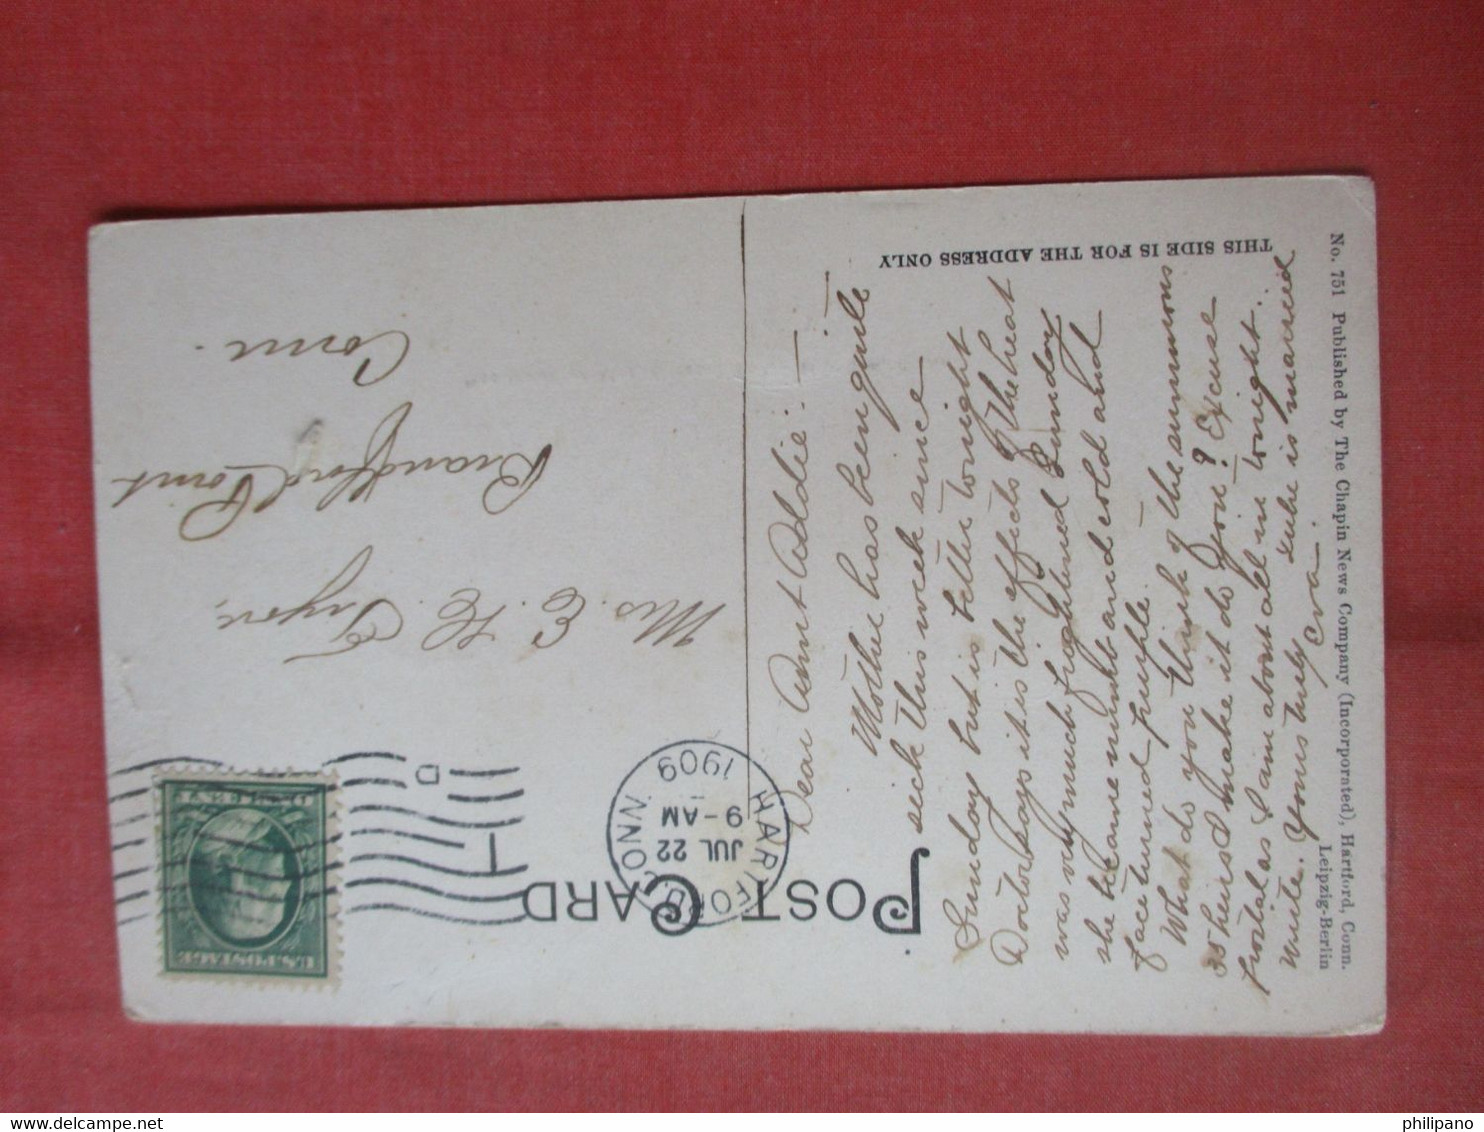 No. 751 Published by The Chapin News Company (Incorporated), Hartford, Conn.
Leipzig-Berlin
THIS SIDE IS FOR THE ADDRESS ONLY
POST CARD
HARTFORD, CONN.
JUL 22
9-AM
1909
D
U.S. POSTAGE
Mrs. E. H. Tryon,
Branfford Point
Conn.
Dear Aunt Addie: —
Mother has been quite
sick this week since
Sunday but is better tonight
Doctor says it is the effects of the heat
was very much frightened Sunday
she became numb and cold and
face turned purple.
What do you think of the summons
I make it do you? Excuse
postal as I am about all in tonight.
write. Yours truly
is married
Eva.
philipano